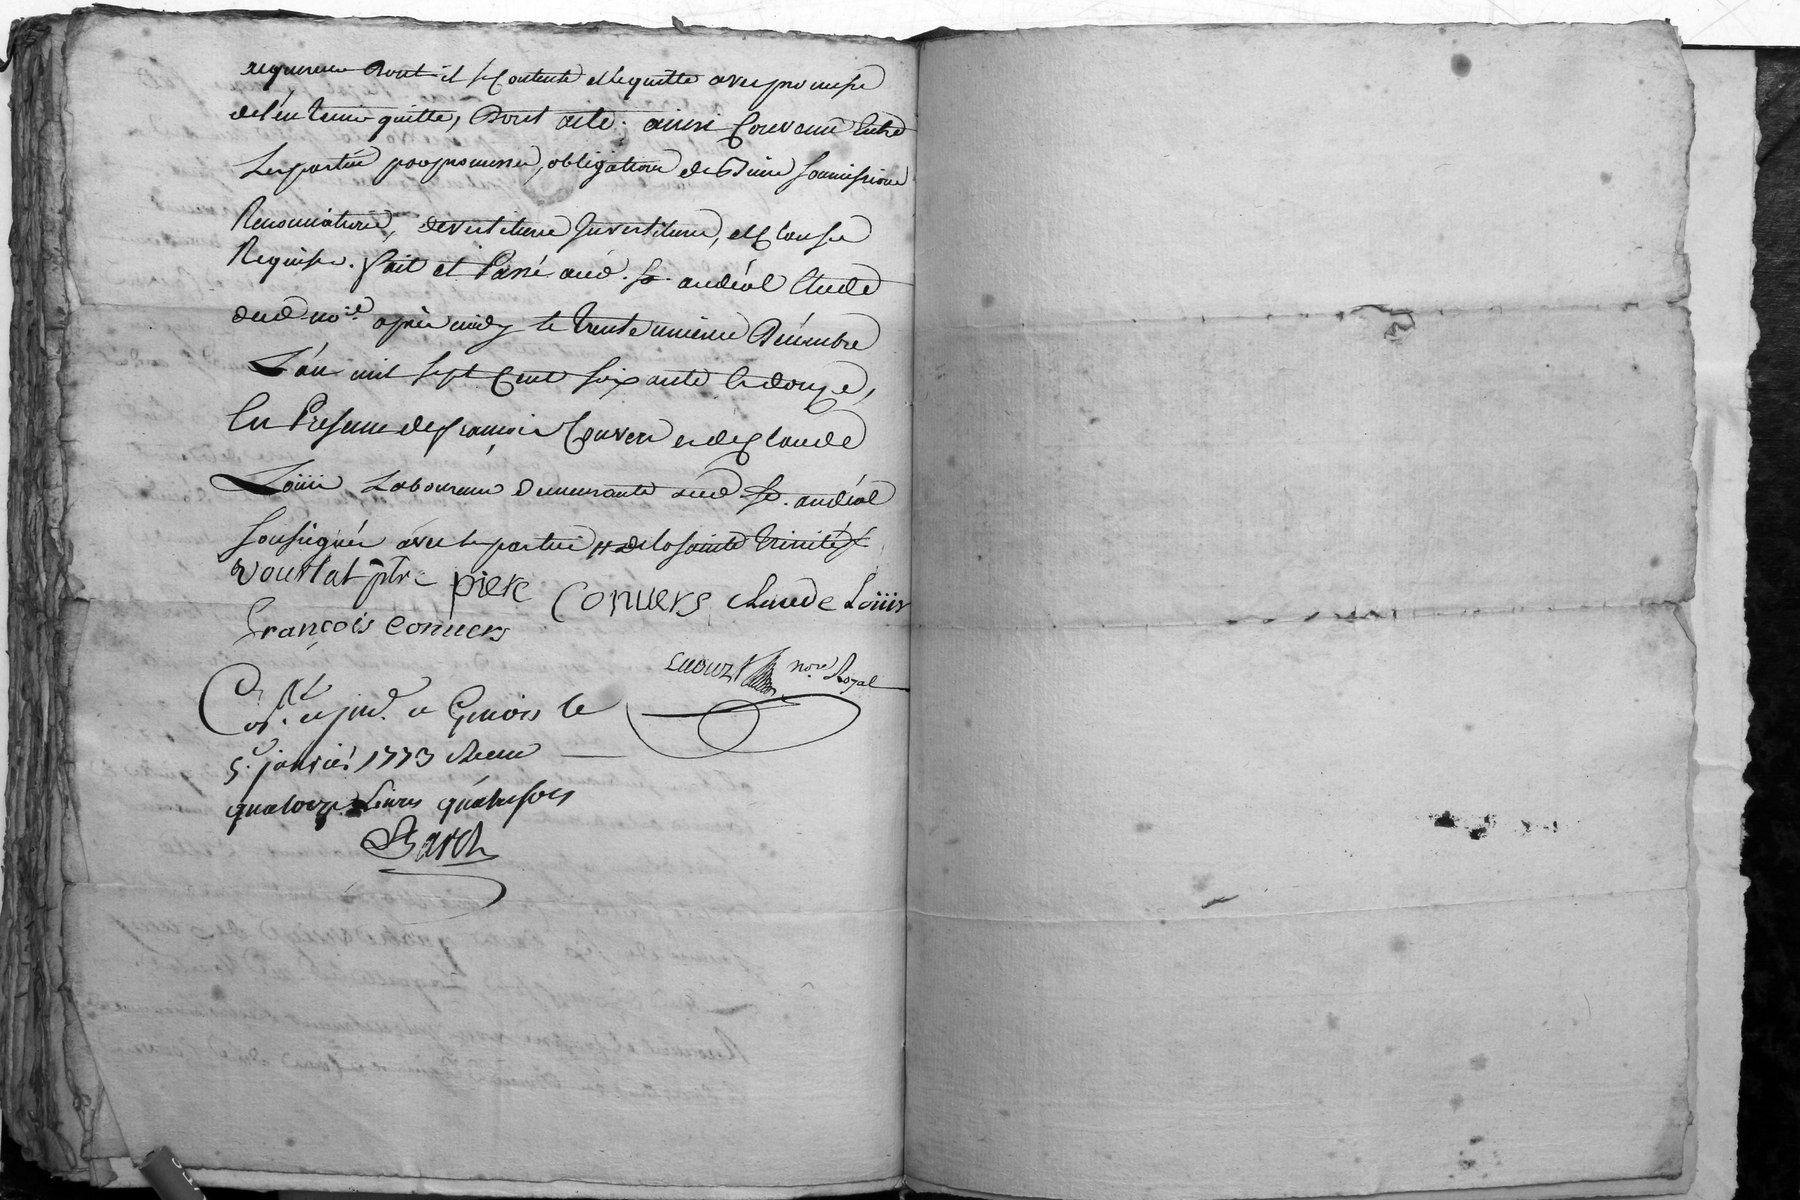 acquereur Dont il se Contente et le quitte avec promesse
de l'en tenir quitte, Dont acte. ainsi Convenu Entre
Les parties par promesses, obligations de Biens soumissions
Renonciations, devestiture Investiture, et Clauses
Requises. fait et Passé aud. St. andéol Etude
dud. noire après midy le trente unieme Décembre
L'an mil sept Cent soixante et douze,
En Presence de françois Convers et de Claude
Loüis Laboureurs Demeurants aud. St. andéol
soussignés avec les parties # de la sainte trinité #
ptre piere Convers Claude Loüis
François Convers
nore Royal
Con.lé et ins. a le
5e janvier 1773 Recu
quatorze Livres quatre sols